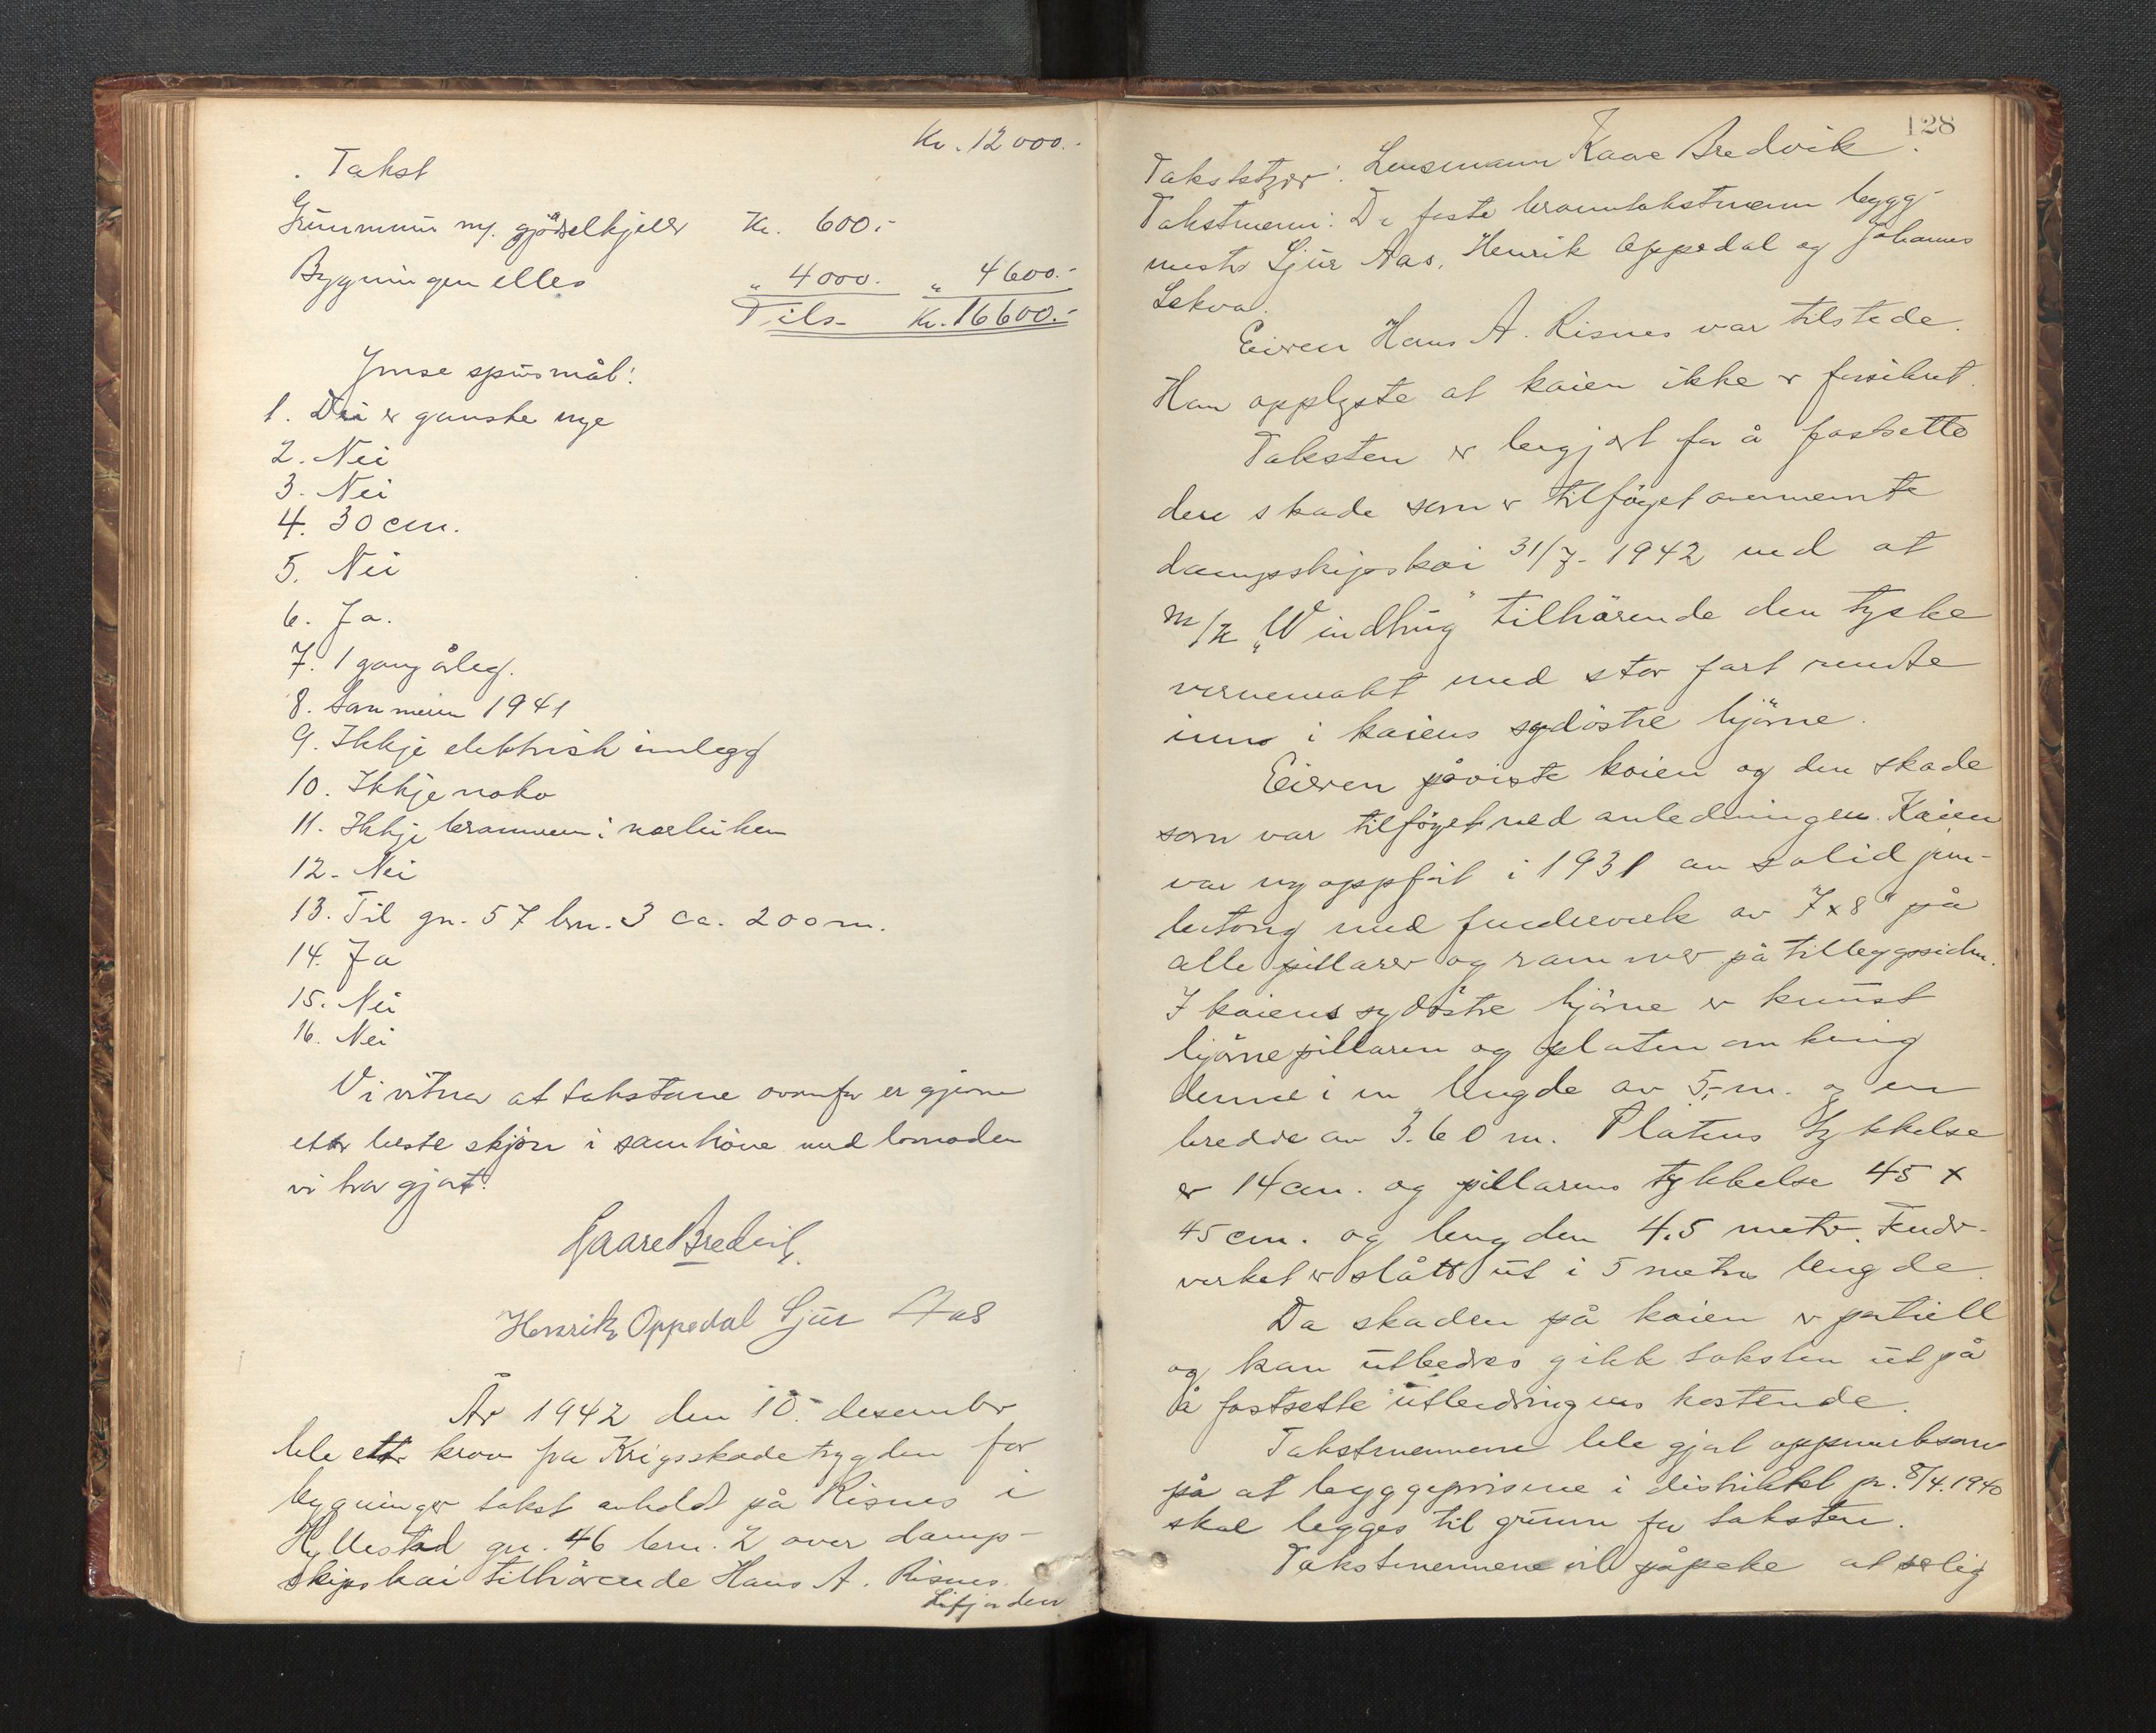 Kr. 12 000.-
. Takst
Grunnmur m/. gjødselkjeller Kr. 600.-
Bygningen elles " 4000. " 4600.-
Tils. Kr. 16600.-
Ymse spursmål:
1. Dei er ganske nye
2. Nei
3. Nei
4. 30 cm.
5. Nei
6. Ja.
7. 1 gang årleg.
8. Sommeren 1941
9. Ikkje elektrisk innlegg
10. Ikkje noko
11. Ikkje brannvern i nærleiken
12. Nei
13. Til gn. 57 brn. 3 ca. 200 m.
14. Ja
15. Nei
16. Nei
Vi vitnar at takstane ovanfor er gjevne
etter beste skjøn i samhøve med
vi har gjort.
Kaare Bredvik.
Henrik Oppedal Sjur Aas
År 1942 den 10. desember
ble etter krav fra Krigsskadetrygden for
bygninger takst avholdt på Risnes i
Hyllestad gn. 46 brn. 2 over damp-
skipskai tilhörende Hans A. Risnes
Lifjorden
128
Takststyrer: Lensmann Kaare Bredvik.
Takstmenn: De faste branntakstmenn bygg-
mester Sjur Aas, Henrik Oppedal og Johannes
Lekva.
Eieren Hans A. Risnes var tilstede.
Han opplyste at kaien ikke er forsikret.
Taksten er begjært for å fastsette
den skade som er tilföyet ovennevnte
dampskipskai 31/7- 1942 ved at
m/k „Windhug" tilhörende den tyske
vernemakt med stor fart rente
inn i kaiens sydöstre hjörne.
Eieren påviste kaien og den skade
som var tilföyet ved anledningen. Kaien
var ny oppfört i 1931 av solid jern-
betong med fenderverk av 7x8" på
alle pillarer og rammer på tilleggssiden.
I kaiens sydöstre hjörne er knust
hjörnepillaren og platen omkring
denne i en lengde av 5,- m. og en
bredde av 3.60 m. Platens tykkelse
er 14 cm. og pillarens tykkelse 45 x
45 cm. og lengden 4,5 meter. Fender-
verket er slått ut i 5 meters lengde.
Da skaden på kaien er partiell
og kan utbedres gikk taksten ut på
å fastsette utbedringens kostende.
Takstmennene ble gjort oppmerksom
på at byggeprisene i distriktet pr. 8/4.1940
skal legges til grunn for taksten.
Takstmennene vil påpeke at særlig